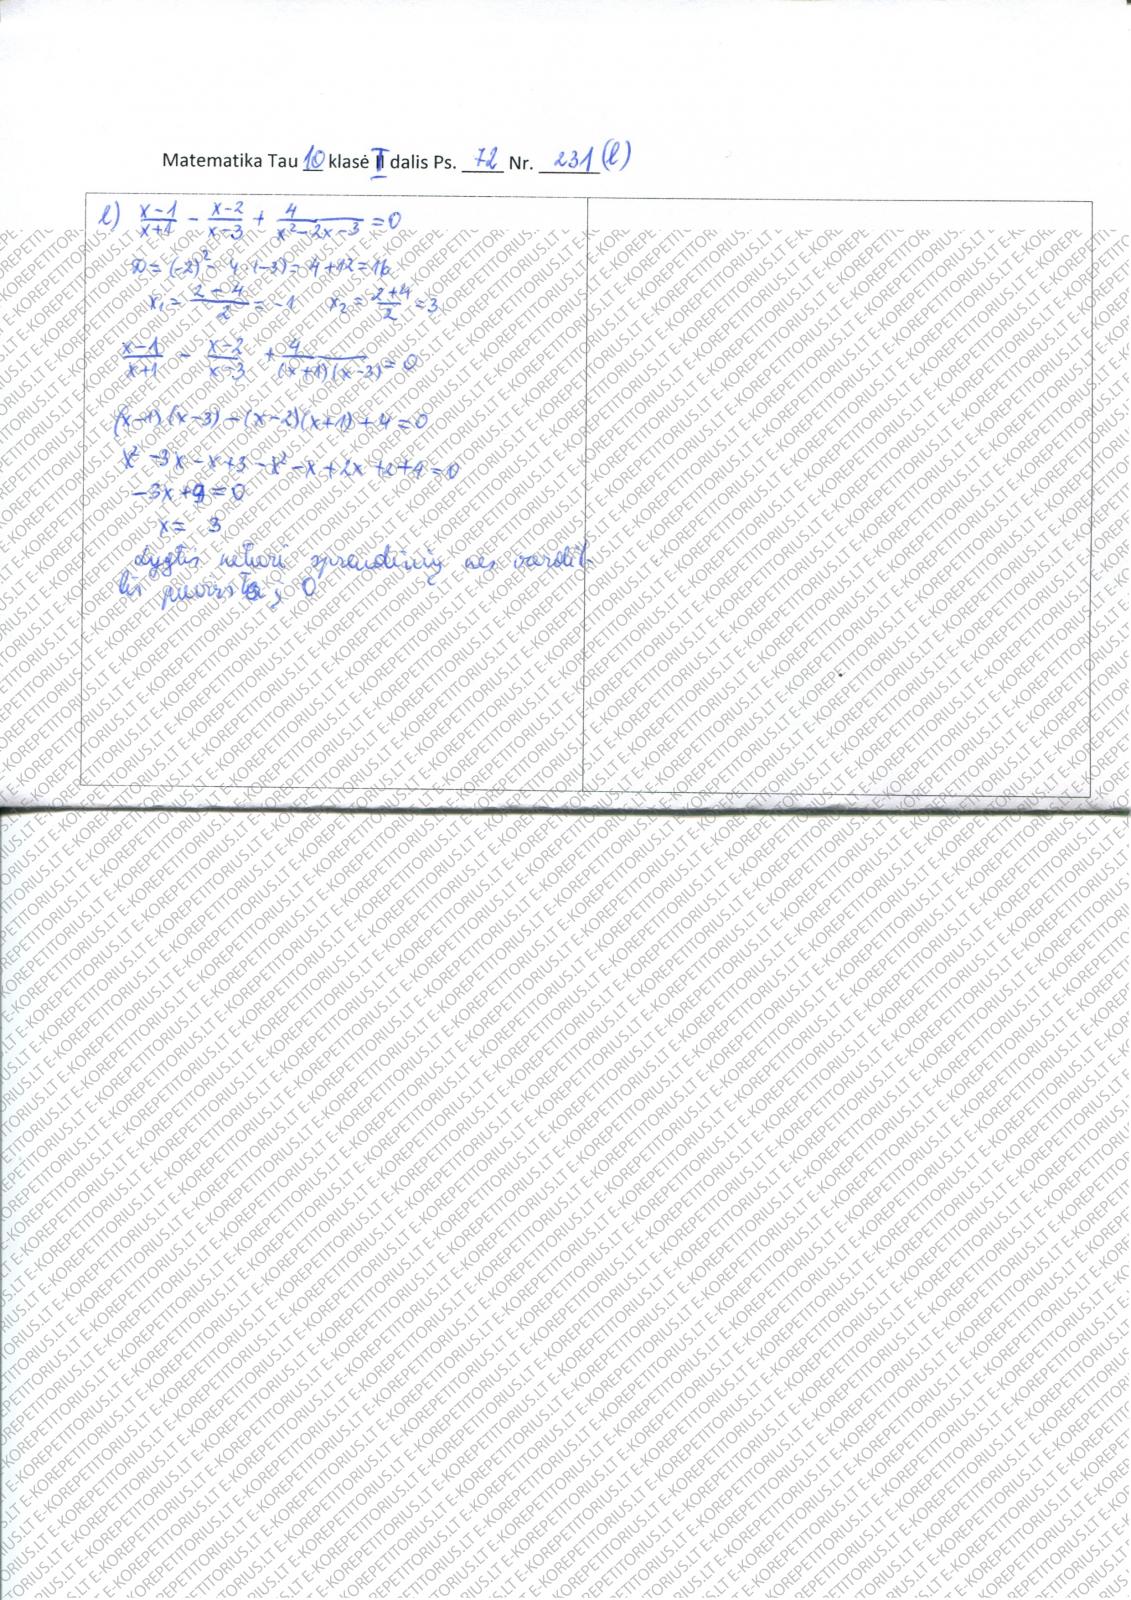 Matematika Tau 10 klasė I dalis Ps. 72 Nr. 231(l)
l) \frac{x-1}{x+1} - \frac{x-2}{x-3} + \frac{4}{x^2-2x-3} = 0
D = (-2)^2 - 4·(-3) = 4+12 = 16
x_1 = \frac{2-4}{2} = -1 x_2 = \frac{2+4}{2} = 3
\frac{x-1}{x+1} - \frac{x-2}{x-3} + \frac{4}{(x+1)(x-3)} = 0
(x-1)(x-3) - (x-2)(x+1) + 4 = 0
x^2 - 3x - x + 3 - x^2 - x + 2x + 2 + 4 = 0
-3x + 9 = 0
x = 3
Lygtis neturi sprendinių nes vardik-
lis pavirsta į 0
E-KOREPETITORIUS.LT